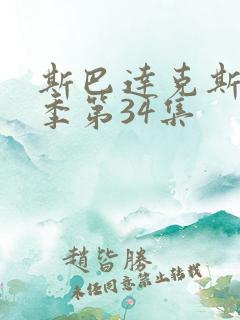 斯巴达克斯
季第34集
赵皆胜
未任同意禁止转载